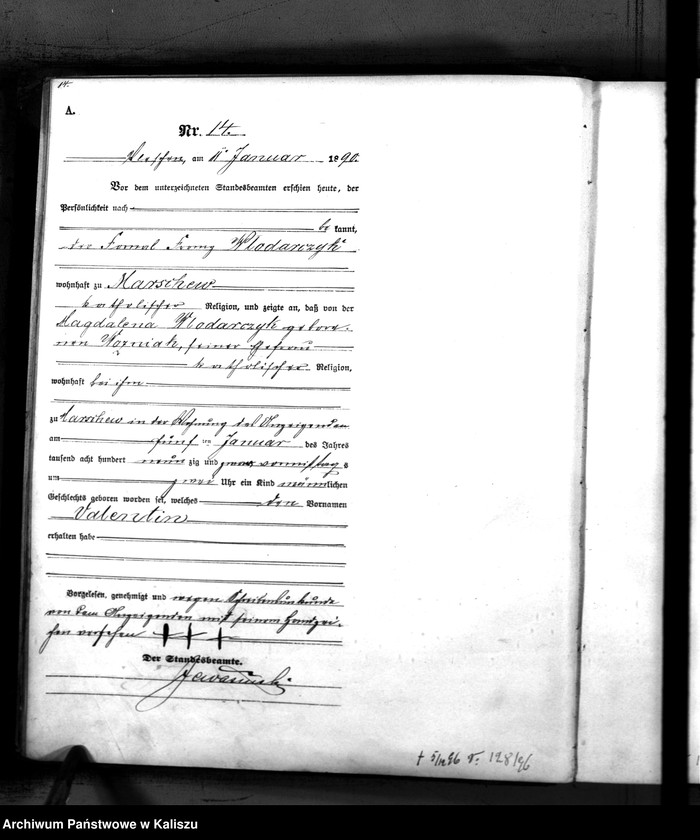 14.
A.
Nr. 14.
Pleschen, am 11. Januar 1890.
Vor dem unterzeichneten Standesbeamten erschien heute, der
Persönlichkeit nach
be kannt,
der Fornal Franz Wlodarczyk
wohnhaft zu Marschew
katholischer Religion, und zeigte an, daß von der
Magdalena Wlodarczyk gebore-
nen Woźniak, seiner Ehefrau
katholischer Religion,
wohnhaft bei ihm
zu Marschew in der Wohnung des Anzeigenden
am fünf ten Januar des Jahres
tausend acht hundert neun zig und zwar vormittag s
um zwei Uhr ein Kind männlichen
Geschlechts geboren worden sei, welches den Vornamen
Valentin
erhalten habe
Vorgelesen, genehmigt und wegen Schreibensunkunde
von dem Anzeigenden mit seinem Handzei-
chen versehen +++
Der Standesbeamte.
128/96
Archiwum Państwowe w Kaliszu